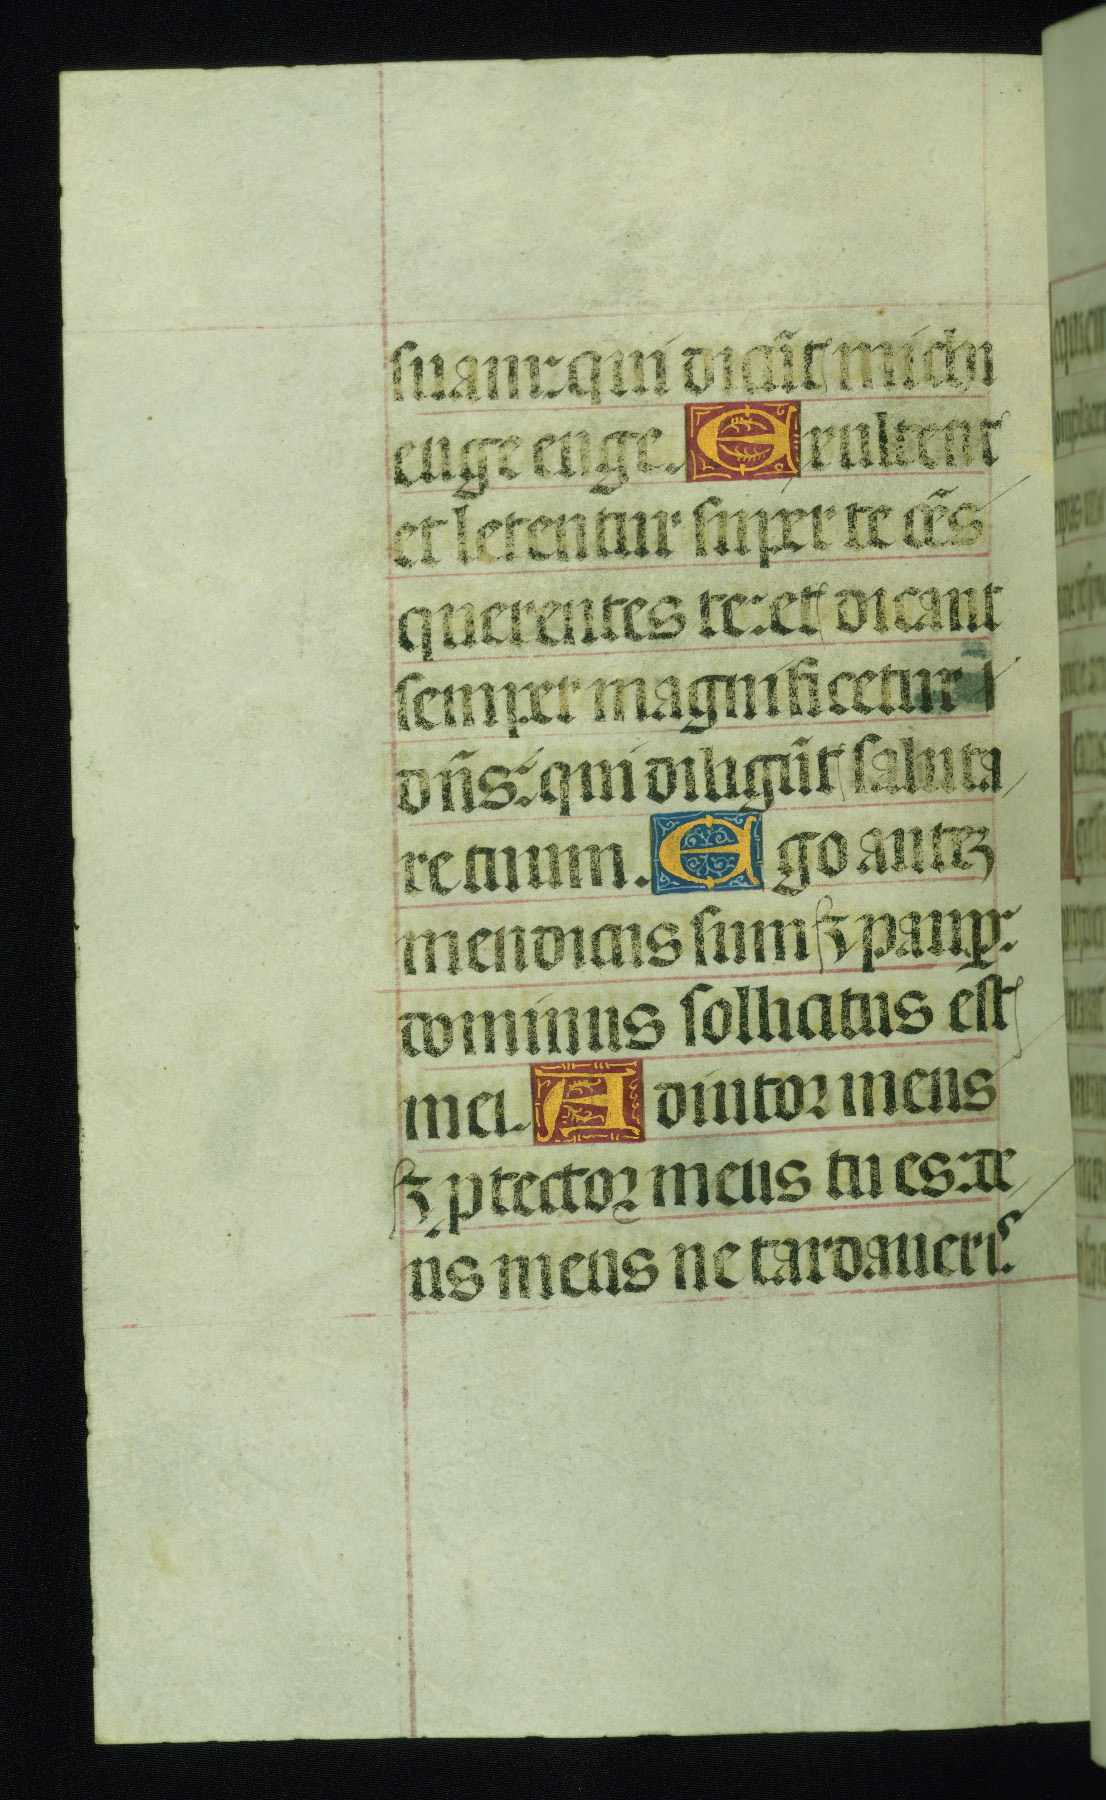 suam: qui dicũt michi
euge euge. Exultent
et letentur super te oẽs
querentes te: et dicant
semper magnificetur
dñs: qui diligũt saluta
re tuum. Ego autez
mendicus sum ꝫ paup̲:
dominus sollicitus est
mei. Adiutor meus
ꝫ ꝓtector meus tu es: de
us meus ne tardaueris.